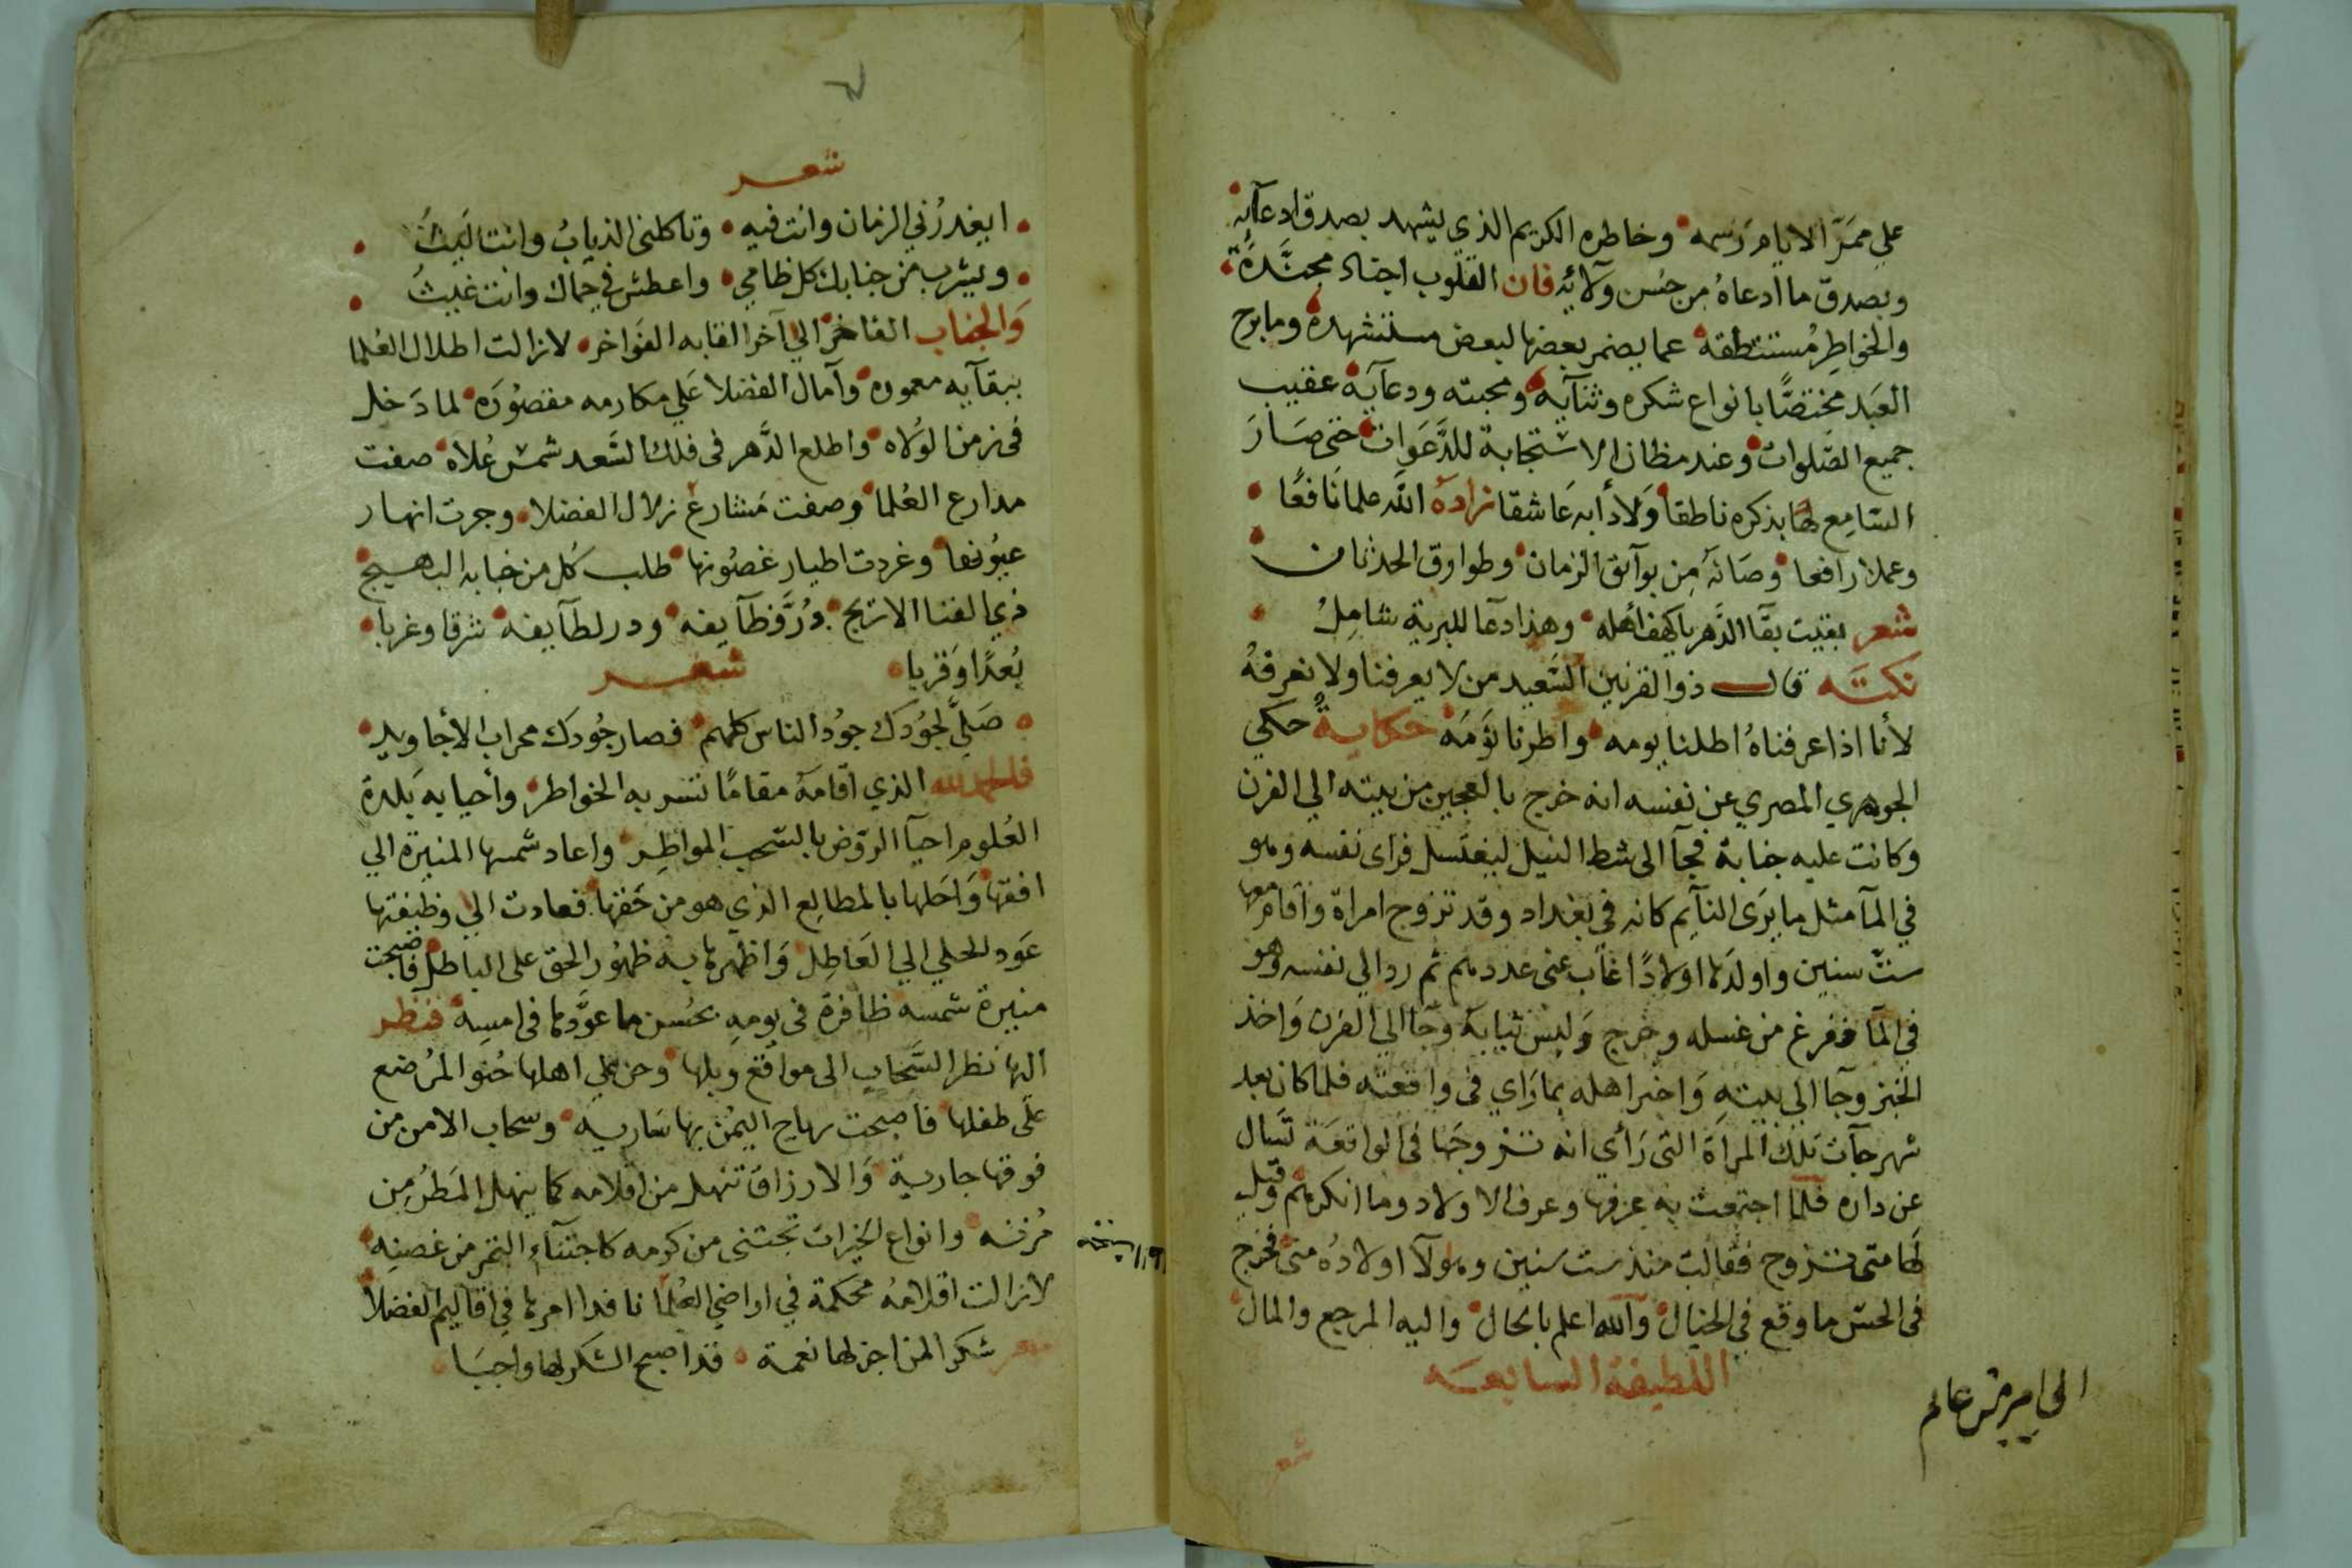 علي ممرّ الايام رسمه وخاطره الكريم الذي يشهد بصدق ادعآئه
وبصدق ما ادعاهُ من حُسن ولآئه فان القلوب اجناد مجنَّدةً
والخواطِر مُستنطقة عما يضمر بعضها لبعض مستشهدة وما برح
العَبد مختصًّا بانواع شكره وثنآيه ومحبته ودعآيه عقيب
جميع الصَّلوات وعند مظان الاستجابة للدَّعَوات حتى صَارَ
السّامِع لها بذكره ناطقا وَلادأبه عَاشقا زادَه الله علما نَافعًا
وعملا رافعا وصَانَه مِن بوآئق الزمان وطوارق الحدثان
شعر بقيت بقآ الدَّهر يا كهف أهله وهذا دعآ للبرية شامِلُ
نكتَـه قال ذو القرنين السَّعيد من لا يعرفنا ولا نعرفهُ
لأنا اذا عرفناهُ اطلنا يومه واطرنا نؤمَهَ حكاية حكي
الجوهري المصري عن نفسه انه خرج بالعجين من بيته الي الفرن
وكانت عليه جنابة فجآ الى شط النيل ليغتسل فراى نفسه وهو
في المآ مثل ما يرَى النآيِم كانه في بغداد وقد تزوج امراة واقام معها
ستّ سنين واولدَها اولادًا غاب عنى عددهم ثم رد الي نفسه وهو
في المآ ففرغ من غسله وخرج وَلبس ثيابَه وجآ الي الفرن وَاخذ
الخبز وجآ الي بيته وَاخبر اهله بما رَاي في واقعته فلما كان بعد
شهر جآت تلك المرأة التى رَأي انه تزوجَها في الواقعَة تسَال
عن داره فلمّا اجتمعت به عرفها وعرف الاولاد وما انكرهم وقيل
لَها متى تزوج فقالت منذ ست سنين وهولآ اولادُه منى فخرج
في الحسّ ما وقع في الخيال والله اعلم بالحال واليه المرجع والمال
اللطيفة السابعَـه
شعـر
ايغدرُني الزمان وانت فيه وتاكلنى الذيابُ وانت لَيثُ
ويشرب من جنابك كل ظامي واعطش في حماك وانت غيثُ
وَالجناب الفاخر الي آخر القابه الفَواخر لا زالت اطلال العُلما
ببقآيه معموره وآمال الفضلا عَلي مكارمه مقصُورَه لما دَخل
في زمن الوُلاه واطلع الدَّهر في فلك السَّعد شمسَ عُلاه صفت
مدارع العُلما وصفت مَشارع زلال الفضلا وجرت انهار
عيُونها وغردت اطيار غصُونها طلب كُل من جنابه البهـيج
ذي الفنا الاريج دُرَّ وظآيفه ودر لطآيفه شرقا وغربا
بُعدًا وَقربا شعـر
صَلَّي لجُودك جودُ الناس كلهم فصار جُودك محراب الأجاويد
فلله الحمد الذي اقامَهُ مقامًا تسر به الخواطر وأحيا به بَلدة
العُلوم احيآ الروّض بالسّحب المواطِر واعاد شمسها المنيرة الي
افقها وَاحَلها بالمطالِع الذي هو من حَقها فعادت الي وظيفتها
عَود الحلي الي العَاطِل وَاظهرها به ظهُور الحق على الباطل فاصبحت
منيرة شمسه ظافرة في يومِهِ بحُسن ما عوَّدها في امسِه فنظر
اليها نظر السَّحاب الى مواقع وبلها وحن علي اهلها حُنو المُرضع
عَلَى طفلها فاصبحت رياح اليُمن بها سَارية وسحاب الامن من
فوقها جارية وَالارزاق تنهل من اقلامه كما ينهل المَطرُ مِن
مُزنـه وانواع الخيرات تجتنى من كرمه كاجتنآءِ الثمر من غصنِه
لا زالت اقلامهُ محكمة في اراضي العُلما نافدا امرها في اقاليم الفضلا
شعر شكر المن اجزلها نعمة قد اصبح الشكر لها واجبَا